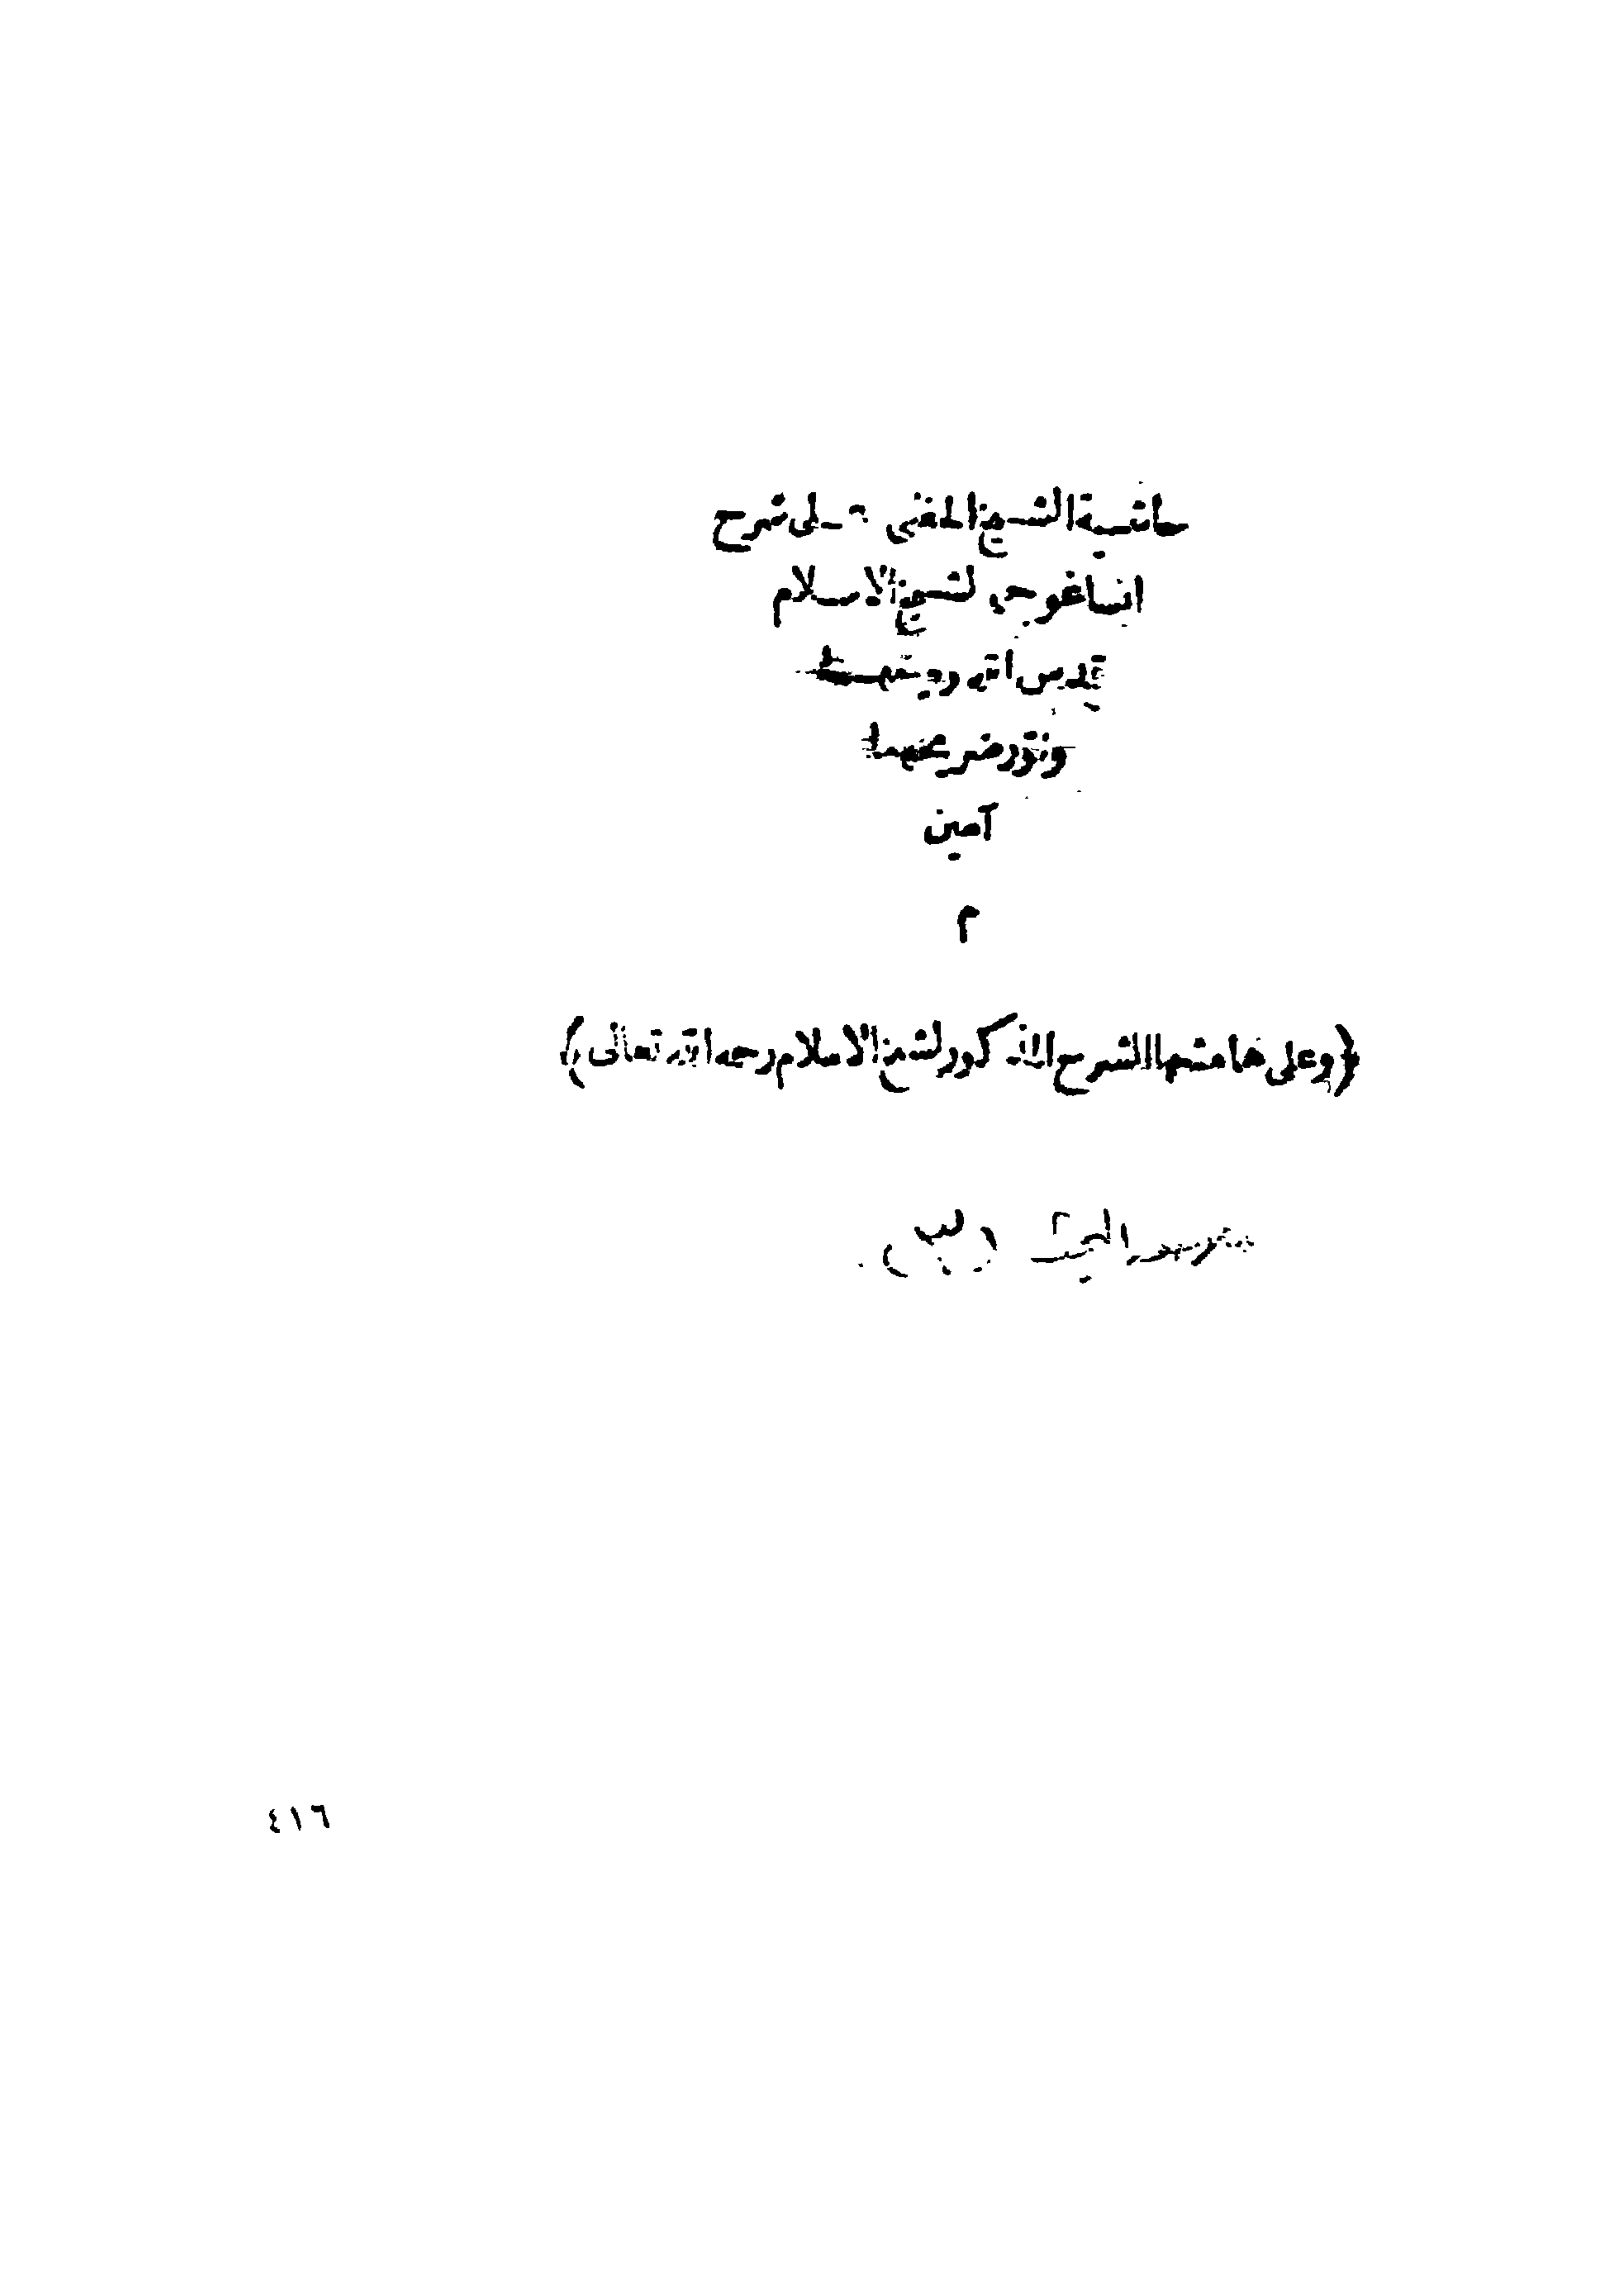 حاشية الشيخ الحفني على شرح
ايساغوجي لشيخ الاسلام
قدس الله روحيهما
ونور ضريحيهما
آمين
م
(وعلى هامشها الشرح المذكور لشيخ الاسلام رحمه الله تعالى)
٤١٦